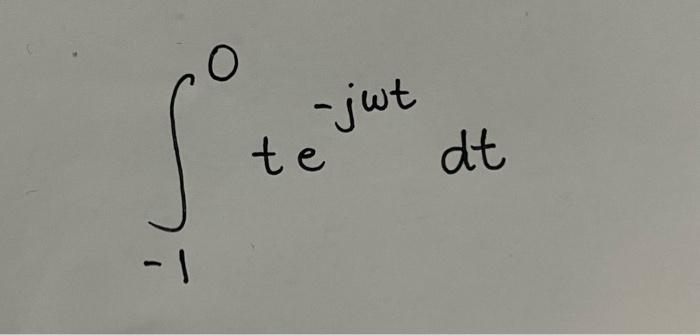 ∫_{-1}^{0} t e^{-jωt} dt